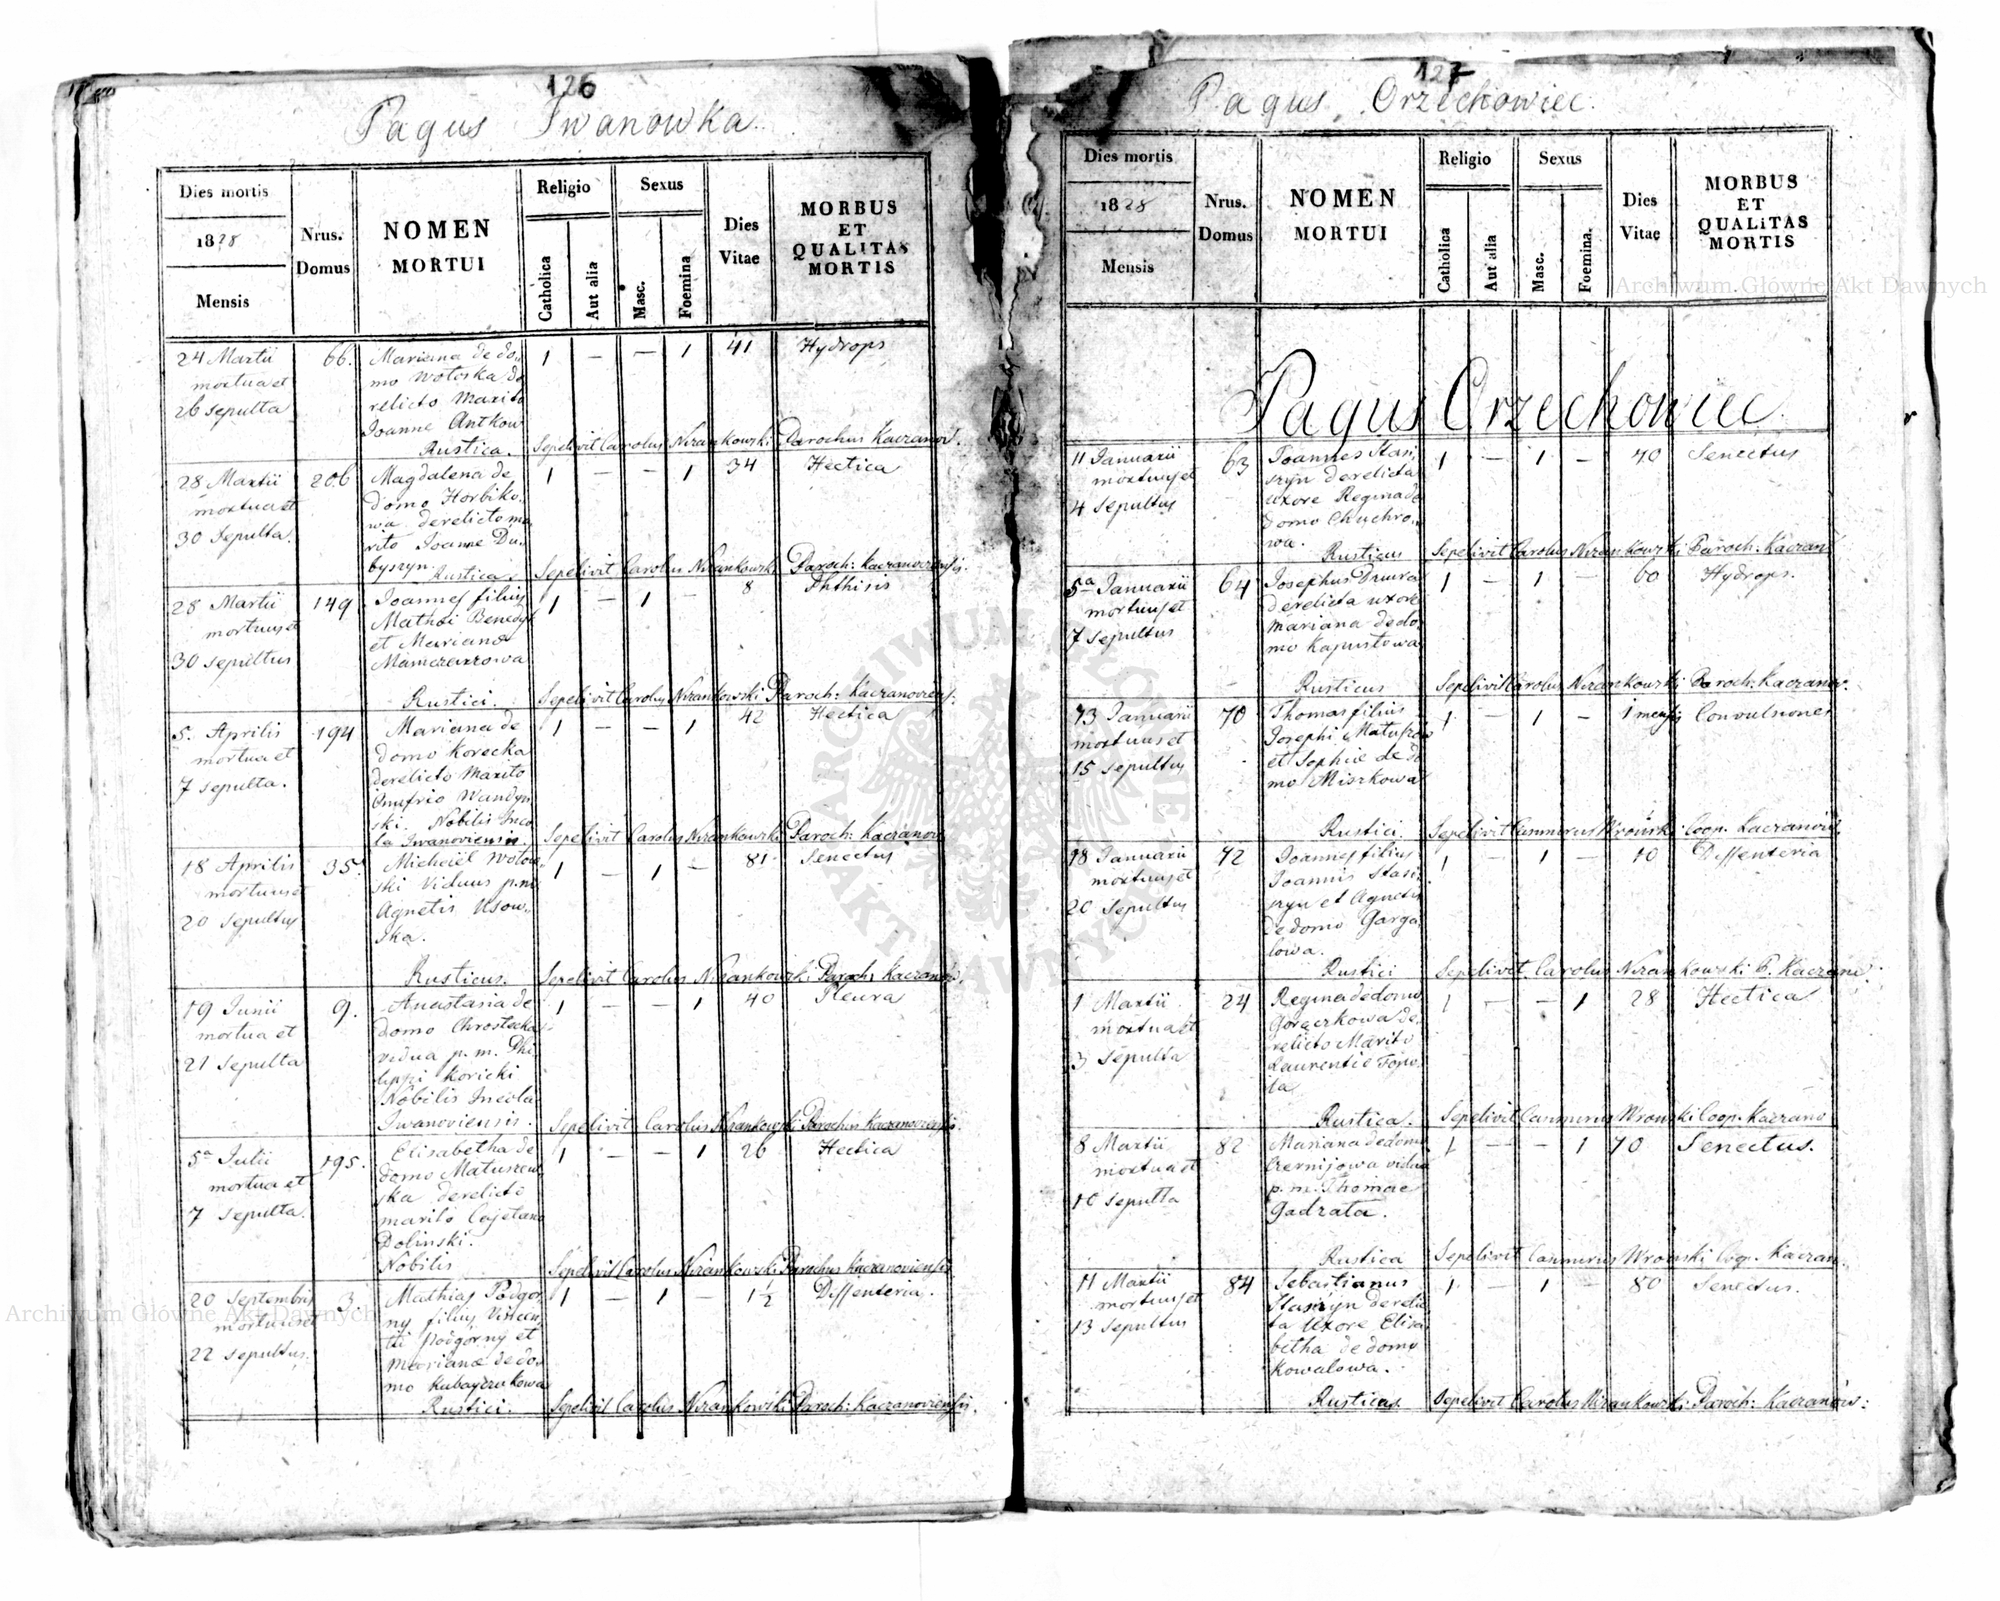 126
Pagus Iwanowka
Dies mortis
1828
Mensis
Nrus. Domus
NOMEN MORTUI
Religio
Catholica
Aut alia
Sexus
Masc.
Foemina
Dies Vitae
MORBUS ET QUALITAS MORTIS
24 Martii 66. Mariana de do- 1 — — 1 41 Hydrops
mortua et mo Wotoska de
26 sepulta relicto Marito
Joanne Antkow
Rustica. Sepelivit Carolus Nirankowski Parochus Kaczanov.
28 Martii 206 Magdalena de 1 — — 1 34 Hectica
mortua et domo Horbiko-
30 Sepulta. wa derelicto ma
rito Joanne Du-
byszyn. Rustica. Sepelivit Carolus Nirankowski Paroch: Kaczanoviensis.
28 Martii 149 Joannes filius 1 — 1 — 8 Phthisis
mortuus et Mathei Benedyk
30 sepultus et Mariana
Rustici. Sepelivit Carolus Nirankowski Paroch: Kaczanoviens:
5. Aprilis 194 Mariana de 1 — — 1 42 Hectica
mortua et domo Korecka
7 sepulta. derelicto Marito
Onufrio Wandyn
ski. Nobilis Inco
la Iwanoviensis. Sepelivit Carolus Nirankowski Paroch: Kaczanov
18 Aprilis 35. Michael Woto- 1 — 1 — 81 Senectus
mortuus et ski Viduus p.m.
20 sepultus Agnetis Usow-
ska.
Rusticus. Sepelivit Carolus Nirankowski Paroch: Kaczanov.
19 Junii 9. Anastasia de 1 — — 1 40 Pleura
mortua et domo Chrostecka
21 sepulta vidua p. m. Phi
lippi Koricki
Nobilis Incola
Iwanoviensis. Sepelivit Carolus Nirankowski Parochus Kaczanoviensis
5a Julii 195. Elisabetha de 1 — — 1 26 Hectica
mortua et domo Matuszew
7 sepulta. ska derelicto
marito Cajetano
Dolinski.
Nobilis Sepelivit Carolus Nirankowski Parochus Kaczanoviensis
20 Septembris 3 Mathias Podgor 1 — 1 — 1½ Dissenteria.
mortuus et ny filius Vincen
22 sepultus. tii Podgorny et
Mariana de do-
mo Kubayczukowa
Rustici. Sepelivit Carolus Nirankowski Paroch: Kaczanoviensis.
127
Pagus Orzechowiec.
Dies mortis
1828
Mensis
Nrus. Domus
NOMEN MORTUI
Religio
Catholica
Aut alia
Sexus
Masc.
Foemina.
Dies Vitae
MORBUS ET QUALITAS MORTIS
Pagus Orzechowiec
11 Januarii 63 Joannes Stas- 1 — 1 — 70 Senectus
mortuus et szyn derelicta
4 sepultus uxore Regina de
domo Chuchro-
wa.
Rusticus Sepelivit Carolus Nirankowski Paroch: Kaczan
5a Januarii 64 Josephus 1 — 1 — 60 Hydrops.
mortuus et derelicta uxore
7 sepultus Mariana de do-
mo Kapustowa
Rusticus Sepelivit Carolus Nirankowski Paroch: Kaczanov.
13 Januarii 70 Thomas filius 1 — 1 — 1 mensis Convulsiones
mortuus et Josephi Matusz
15 sepultus et Sophiæ de do
mo Miszkowa
Rustici. Sepelivit Casimirus Wronski Coop. Kaczanov.
18 Januarii 72 Joannes filius 1 — 1 — 10 Dissenteria
mortuus et Joannis Stas-
20 sepultus szyn et Agnetis
de domo Garga
lowa.
Rustici Sepelivit Carolus Nirankowski P. Kaczano
1 Martii 24 Regina de domo 1 — — 1 28 Hectica
mortua et Goraczkowa de-
3 sepulta relicto Marito
Laurentio Topo-
la
Rustica. Sepelivit Casimirus Wronski Coop. Kaczano
8 Martii 82 Mariana de domo 1 — — 1 70 Senectus.
mortua et Czernijowa vidua
10 sepulta p. m. Thomae
Gadzata.
Rustica Sepelivit Casimirus Wronski Coop. Kaczan.
11 Martii 84 Sebastianus 1 — 1 — 80 Senectus.
mortuus et Staszyn derelic
13 sepultus ta Uxore Elisa
betha de domo
Kowalowa.
Rusticus. Sepelivit Carolus Nirankowski Paroch: Kaczanov:
Archiwum Główne Akt Dawnych
Archiwum Główne Akt Dawnych
ARCHIWUM GŁÓWNE AKT DAWNYCH